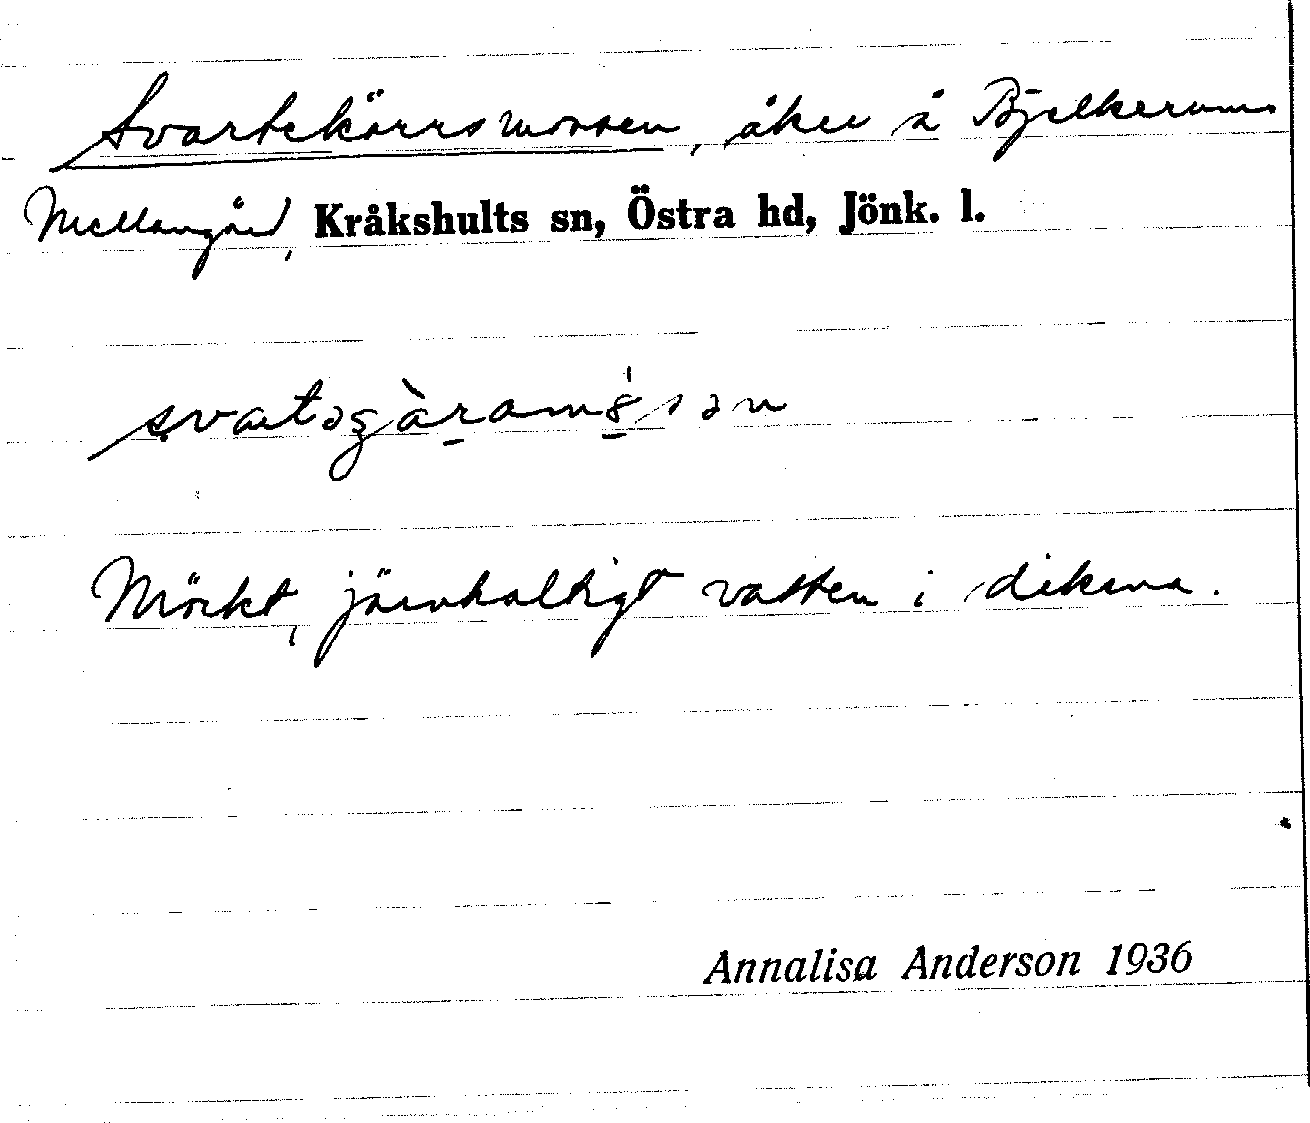 Svartekärrsmossen, åker å Bjelkerums
Mellangård, Kråkshults sn, Östra hd, Jönk. l.
Mörkt, järnhaltigt vatten i dikena.
Annalisa Anderson 1936